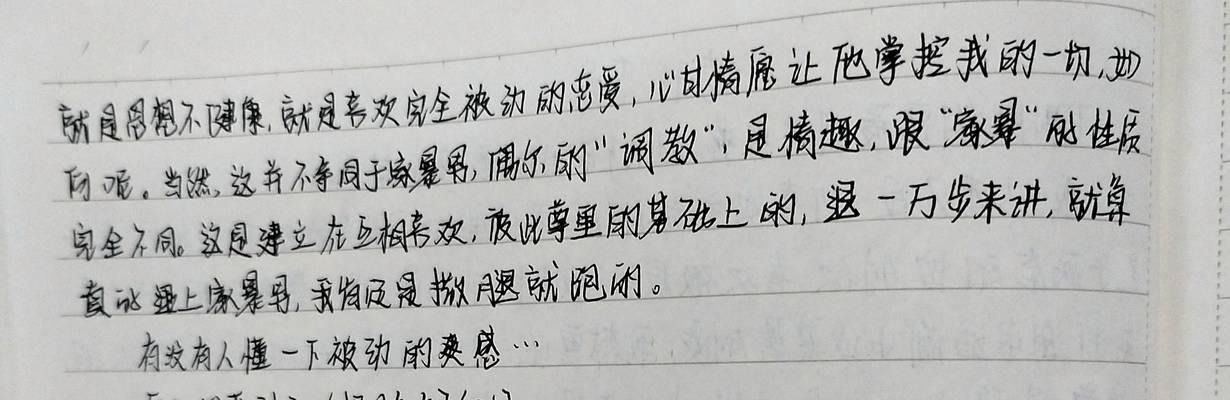 就是思想不健康,就是喜欢完全被动的恋爱,心甘情愿让他掌控我的一切,如
何呢。当然,这并不等同于家暴男,偶尔的“调教”,是情趣,跟“家暴”的性质
完全不同。这是建立在互相喜欢,彼此尊重的基础上的,退一万步来讲,就算
真的遇上家暴男,我肯定是撒腿就跑的。
有没有人懂一下被动的爽感…